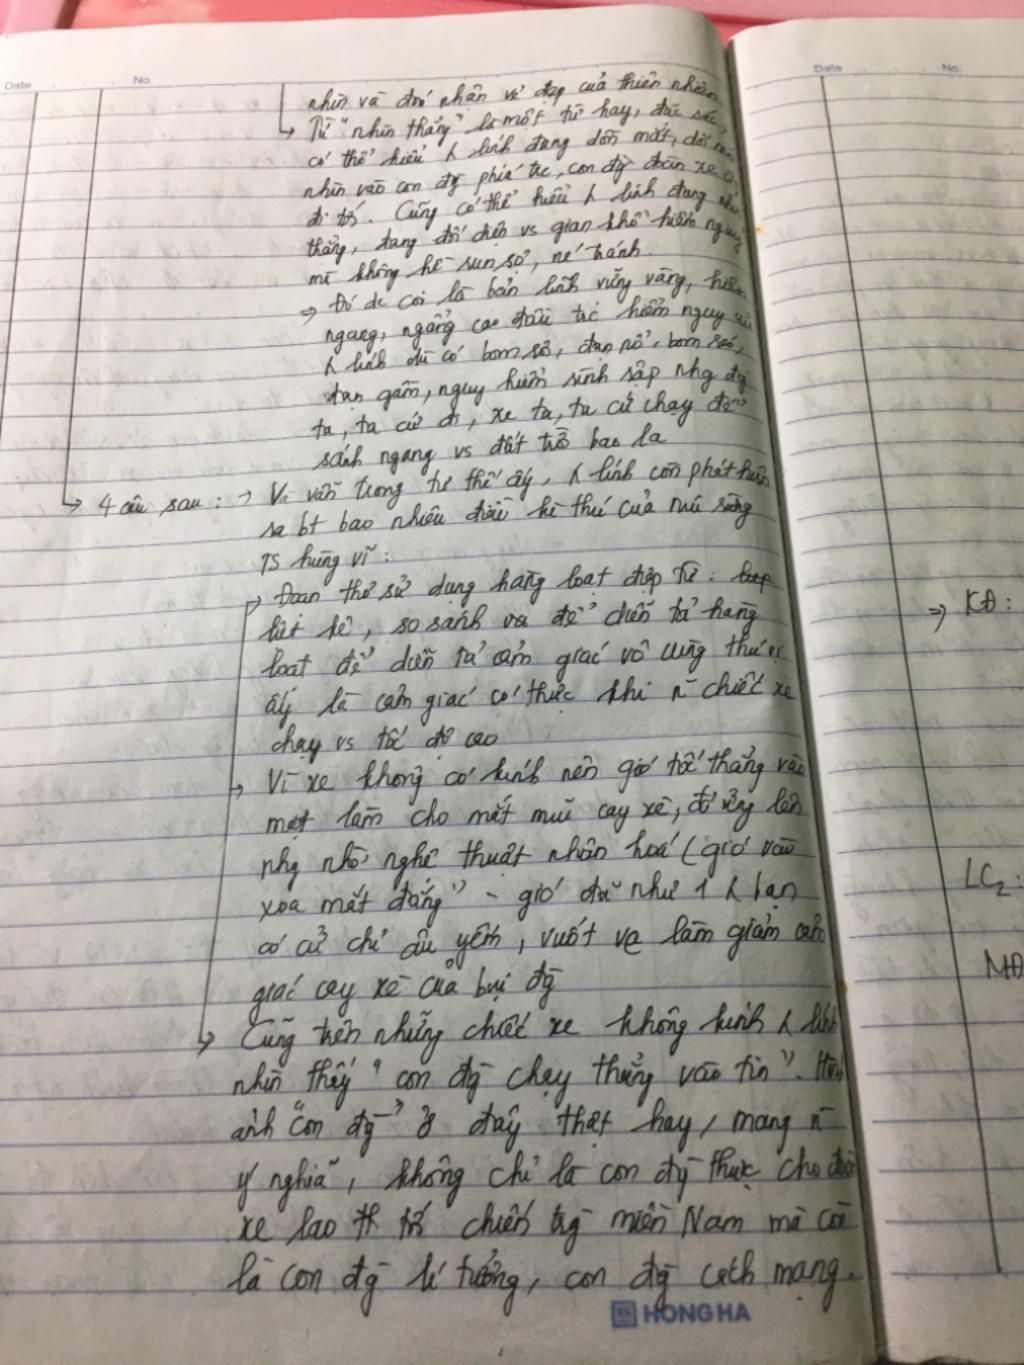 Date No.
nhìn và đón nhận vẻ đẹp của thiên nhiên
Từ "nhìn thẳng" là một từ hay, đặc sắc,
có thể hiểu λ lính đang dồn mắt, dồn
nhìn vào con đg phía tc, con đg đoàn xe
đi tới. Cũng có thể hiểu λ lính đang nhìn
thẳng, đang đối diện vs gian khổ hiểm nguy
mà không hề run sợ, né tránh.
⇒ Đó đc coi là bản lĩnh vững vàng, hiên
ngang, ngẩng cao đầu trc hiểm nguy
λ lính dù có bom đạn nổ, bom
đạn gầm, nguy hiểm rình rập nhg đg
ta, ta cứ đi, xe ta, ta cứ chạy để
sánh ngang vs đất trời bao la
4 câu sau: → Và vẫn trong tư thế ấy, λ lính còn phát hiện
ra bt bao nhiêu điều kì thú của núi rừng
TS hùng vĩ:
→ Đoạn thơ sử dụng hàng loạt điệp từ,
liệt kê, so sánh và để diễn tả hàng
loạt để diễn tả cảm giác vô cùng thú vị
ấy là cảm giác có thực khi chiếc xe
chạy vs tốc độ cao
→ Vì xe không có kính nên gió tốc thẳng vào
mặt làm cho mắt mũi cay xè, đỏ ửng lên
nhg nhờ nghệ thuật nhân hoá (gió vào
xoa mắt đắng" - gió đã như 1 λ bạn
có cử chỉ âu yếm, vuốt ve làm giảm cảm
giác cay xè của bụi đg
→ Cũng trên những chiếc xe không kính λ lính
nhìn thấy "con đg chạy thẳng vào tim". Hình
ảnh "con đg" ở đây thật hay, mang
ý nghĩa, không chỉ là con đg thực cho đoàn
xe lao tới chiến trg miền Nam mà còn
là con đg lí tưởng, con đg cách mạng.
HONG HA
Date No.
⇒ KĐ:
LC2:
MĐ